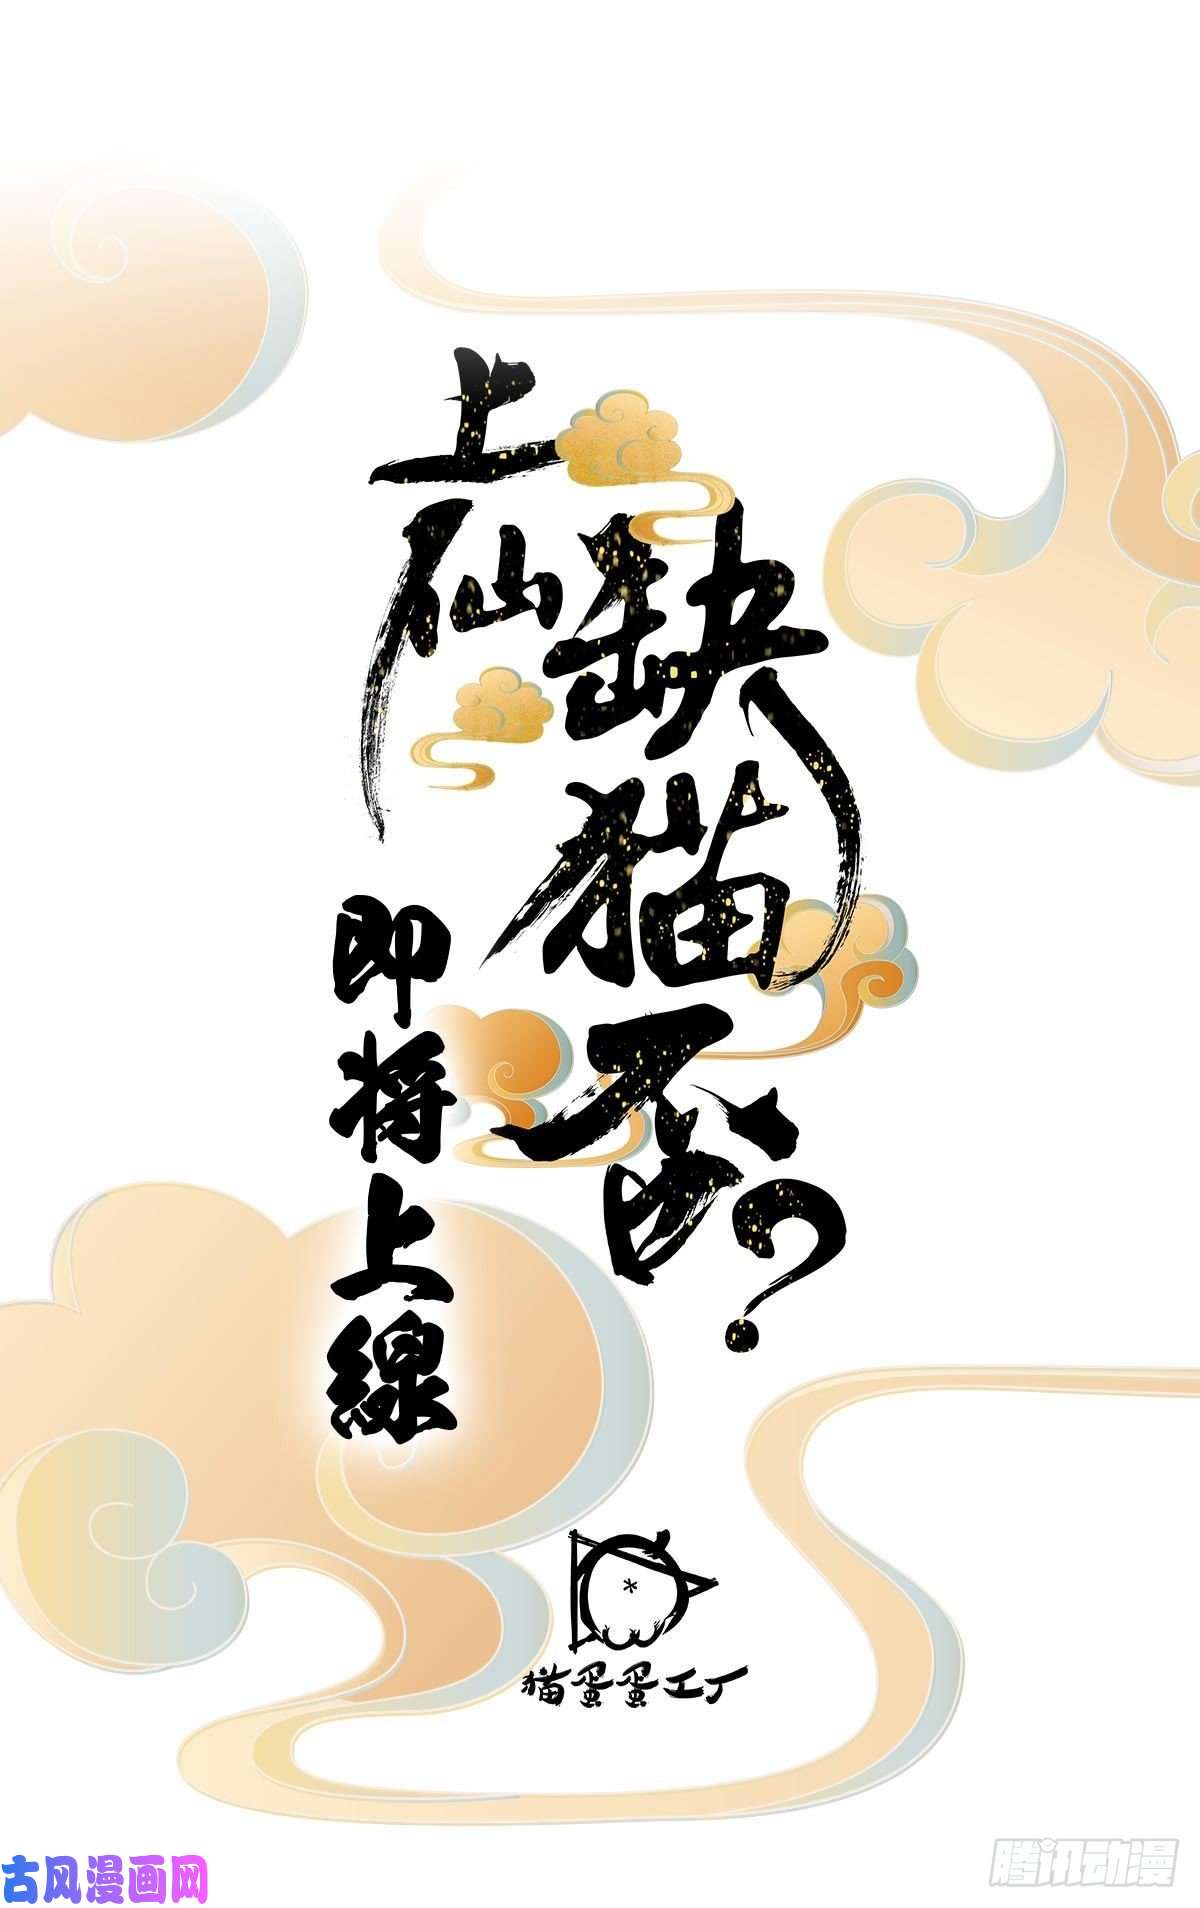 上仙
缺猫否?
即将上線
猫蛋蛋工厂
古风漫画网
腾讯动漫